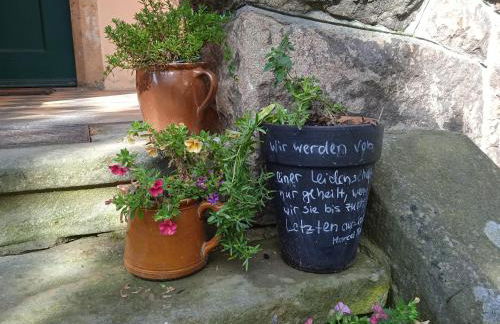 wir werden von
einer Leidenscha
nur geheilt, wen
wir sie bis zum
Letzten
Marcel